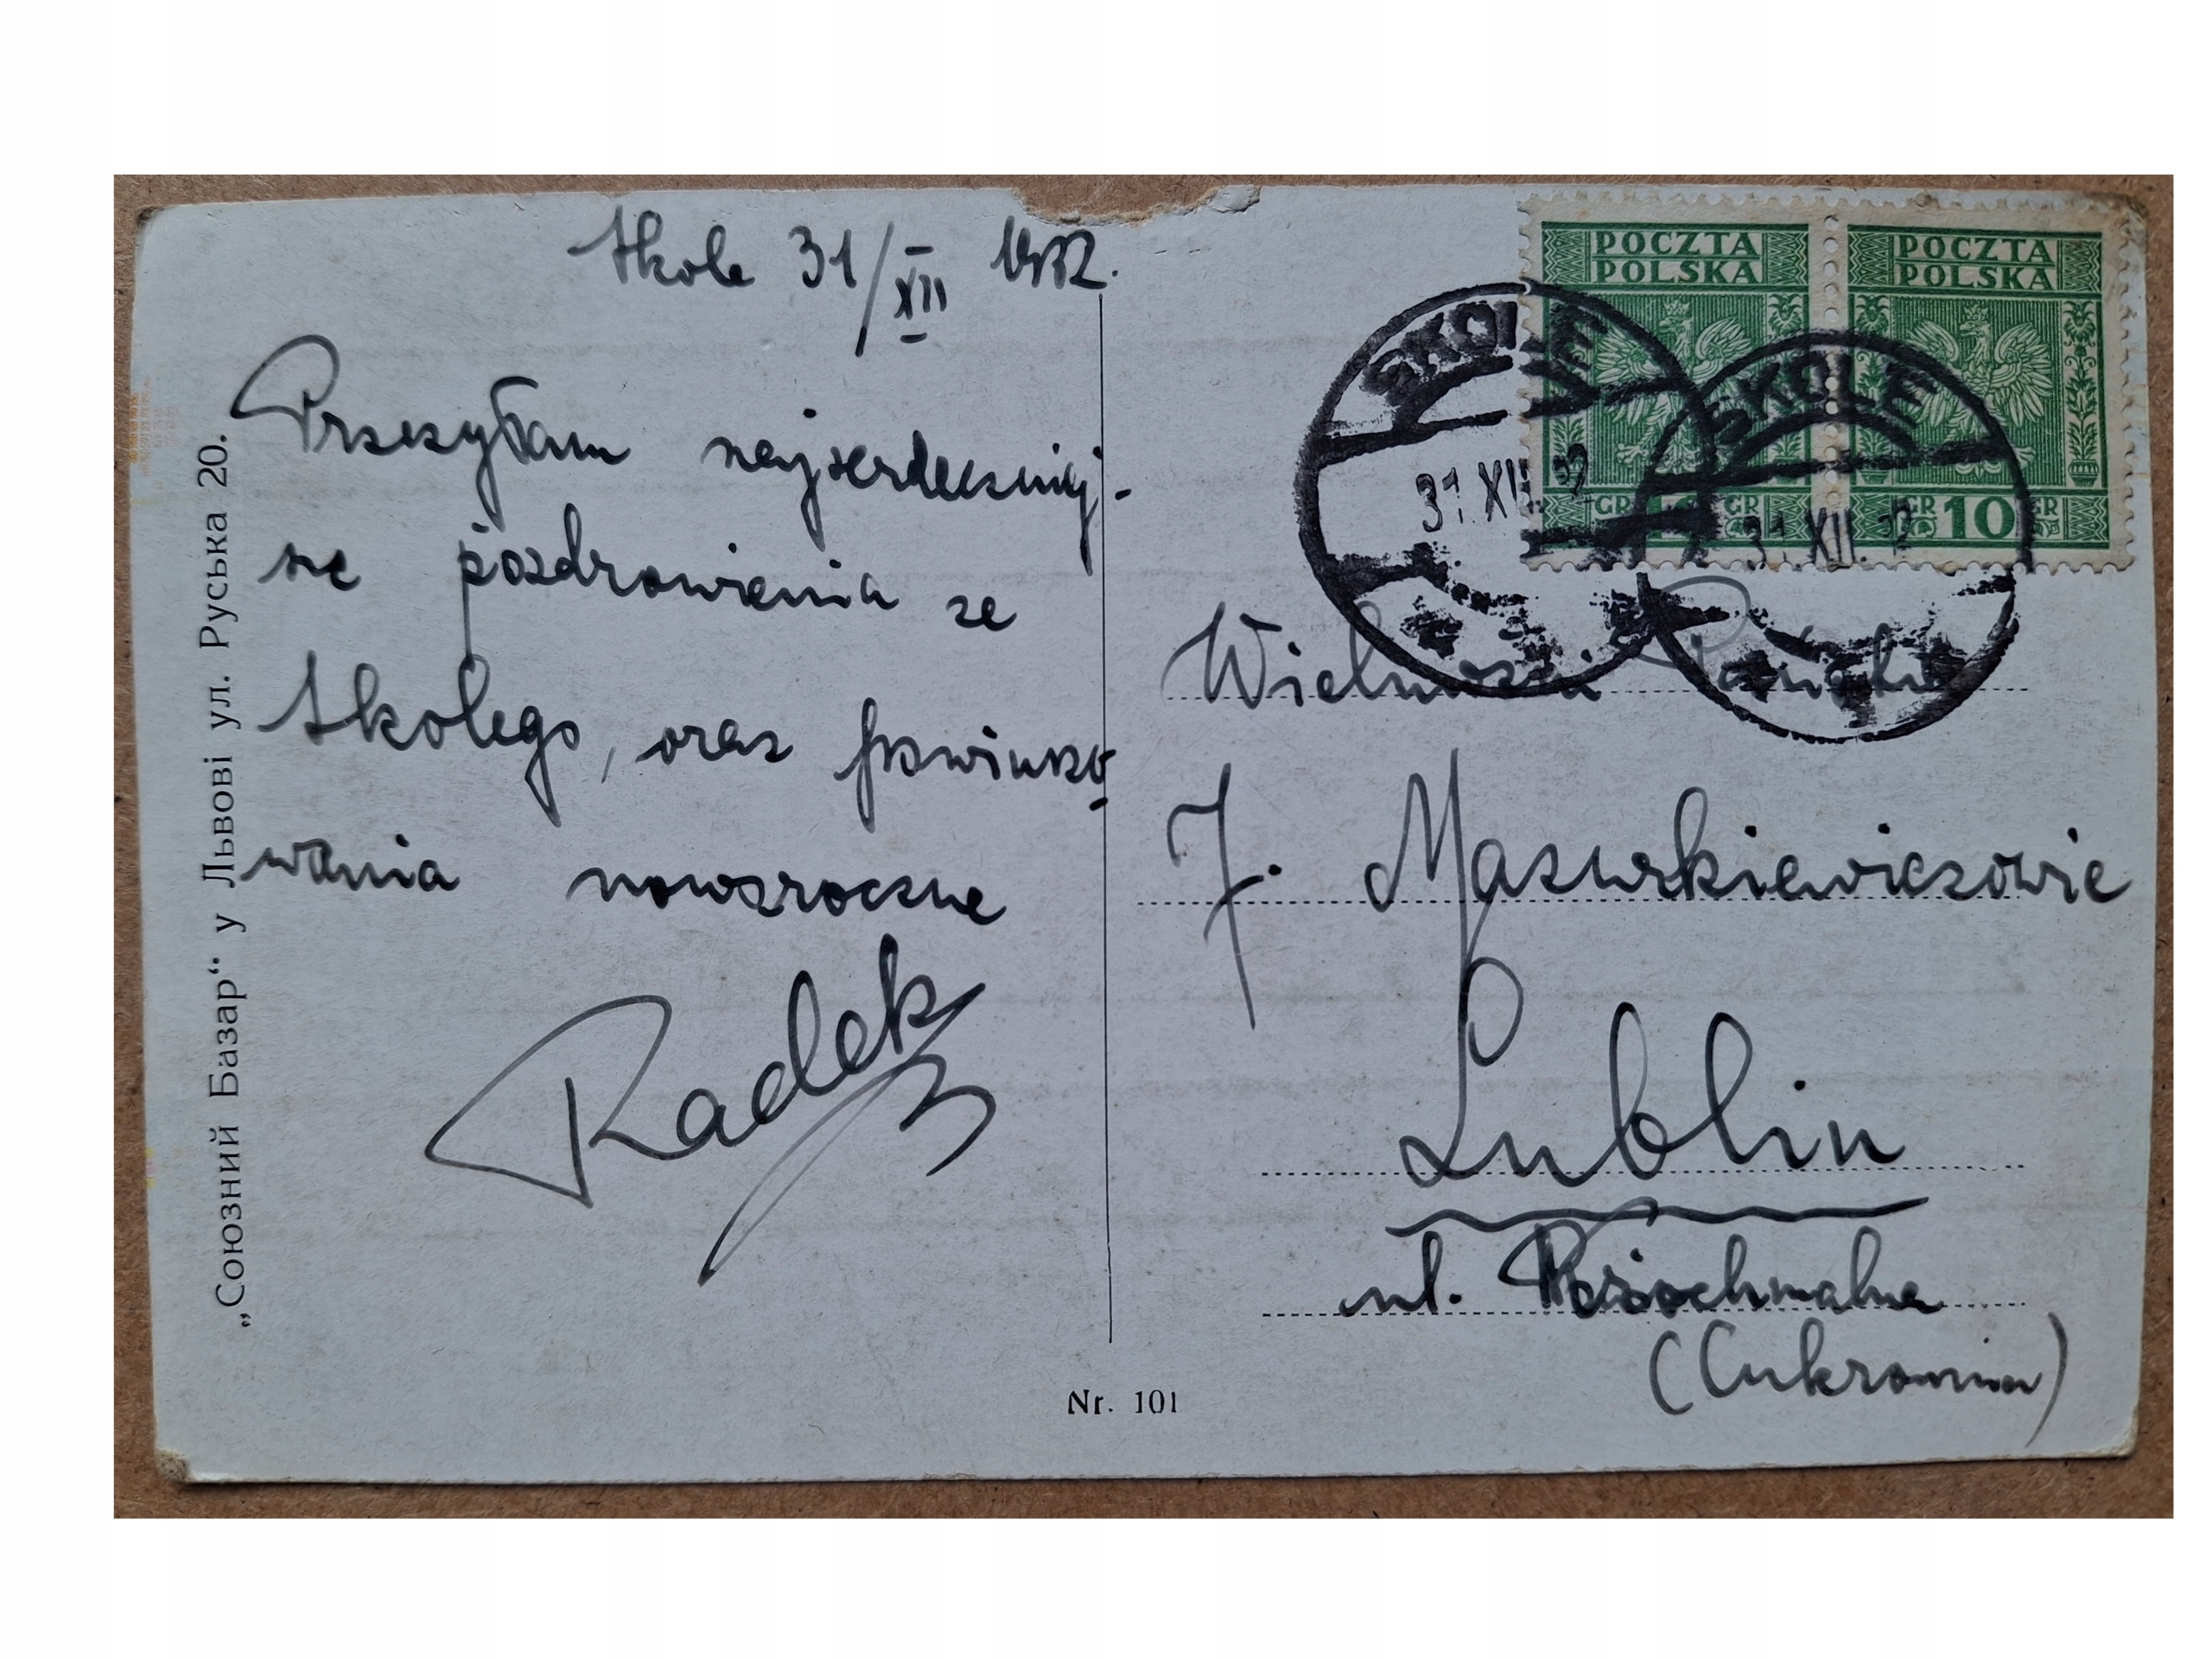 Skole 31/XII 1932.
Przesyłam najserdeczniej-
sze pozdrowienia ze
Skolego, oraz powinszo
wania noworoczne
Radek
„Союзний Базар“ у Львові ул. Руська 20.
Nr. 101
POCZTA
POLSKA
GR GR
POCZTA
POLSKA
GR 10 GR
SKOLE
31.XII.32
SKOLE
31.XII.32
Wielmożni Państwo
J. Mazurkiewiczowie
Lublin
ul.
(Cukrownia)